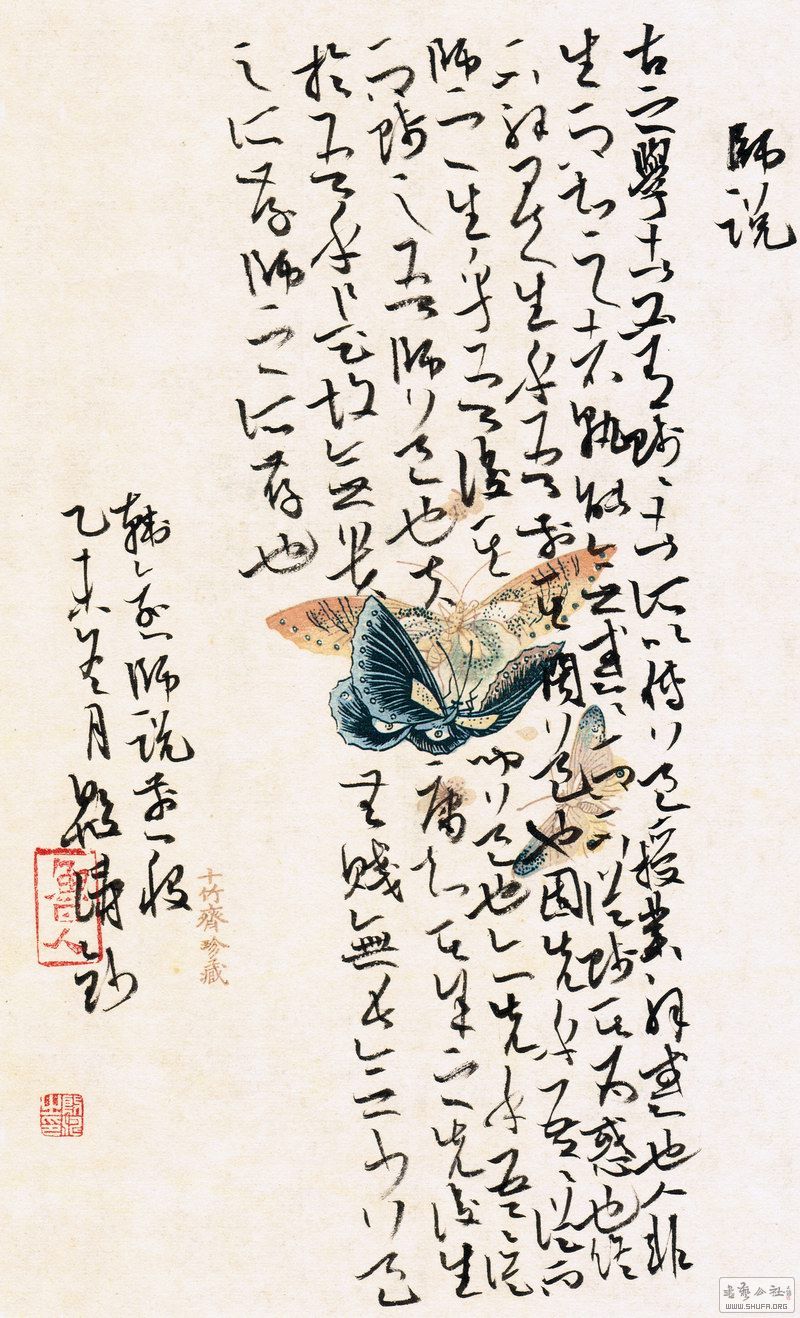 師说
古之學者必有師者所以傳道授業解惑也人非
生而知之者孰能無惑惑而不從師其為惑也終
不解矣生乎吾前其聞道也固先乎吾吾從而
師之生乎吾後其聞道也亦先乎吾吾從
而師之吾師道也夫庸知其年之先後生
於吾乎是故無貴無賤無長無少道
之所存師之所存也
韓愈師说前一段
乙未冬月
魯人
十竹齋珍藏
书艺公社
WWW.SHUFA.ORG